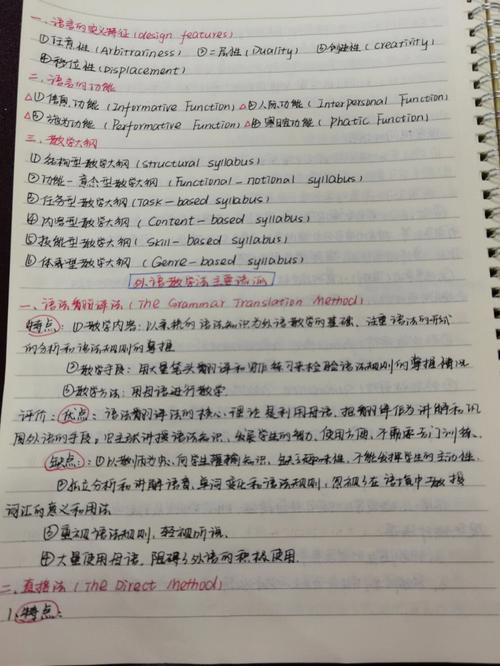 一、语言的定义特征(design features)
①任意性(Arbitrariness) ②二层性(Duality) ③创造性(creativity)
④移位性(Displacement)
二、语言的功能
△①信息功能(Informative Function) △②人际功能(Interpersonal Function)
△③施为功能(Performative Function) △④寒暄功能(Phatic Function)
三、教学大纲
①结构型教学大纲(structural syllabus)
②功能-意念型教学大纲(Functional-notional syllabus)
③任务型教学大纲(Task-based syllabus)
④内容型教学大纲(Content-based syllabus)
⑤技能型教学大纲(Skill-based syllabus)
⑥体裁型教学大纲(Genre-based syllabus)
外语教学法主要流派
一、语法翻译法(The Grammar Translation Method)
特点:①教学内容:以系统的语法知识为外语教学的基础、注重语法的形式
的分析和语法规则的掌握
②教学手段:用大量笔头翻译和写作练习来检验语法规则的掌握情况
③教学方法:用母语进行教学
评价:优点:语法翻译法的核心理论是利用母语,把翻译作为讲解和巩
固外语的手段。但主张讲授语法知识,发展学生的智力,使用方便,不需要专门训练。
缺点:①以教师为中心,向学生灌输知识,缺乏趣味性,不能发挥学生的主动性。
②孤立分析和讲解语音、单词变化和语法规则,忽视了在语境中教授
词汇的意义和用法
③重视语法规则,轻视听说。
④大量使用母语,阻碍了外语的积极使用.
二、直接法(The Direct Method)
1.特点: